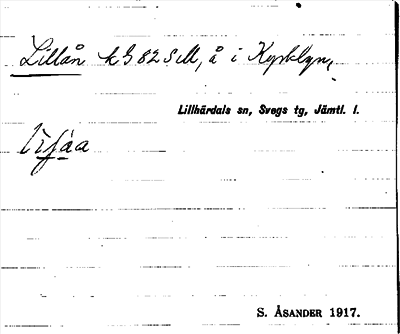 Lillån k J 82 S ill, å i Kyrkbyn,
Lillhärdals sn, Svegs tg, Jämtl. l.
S. ÅSANDER 1917.